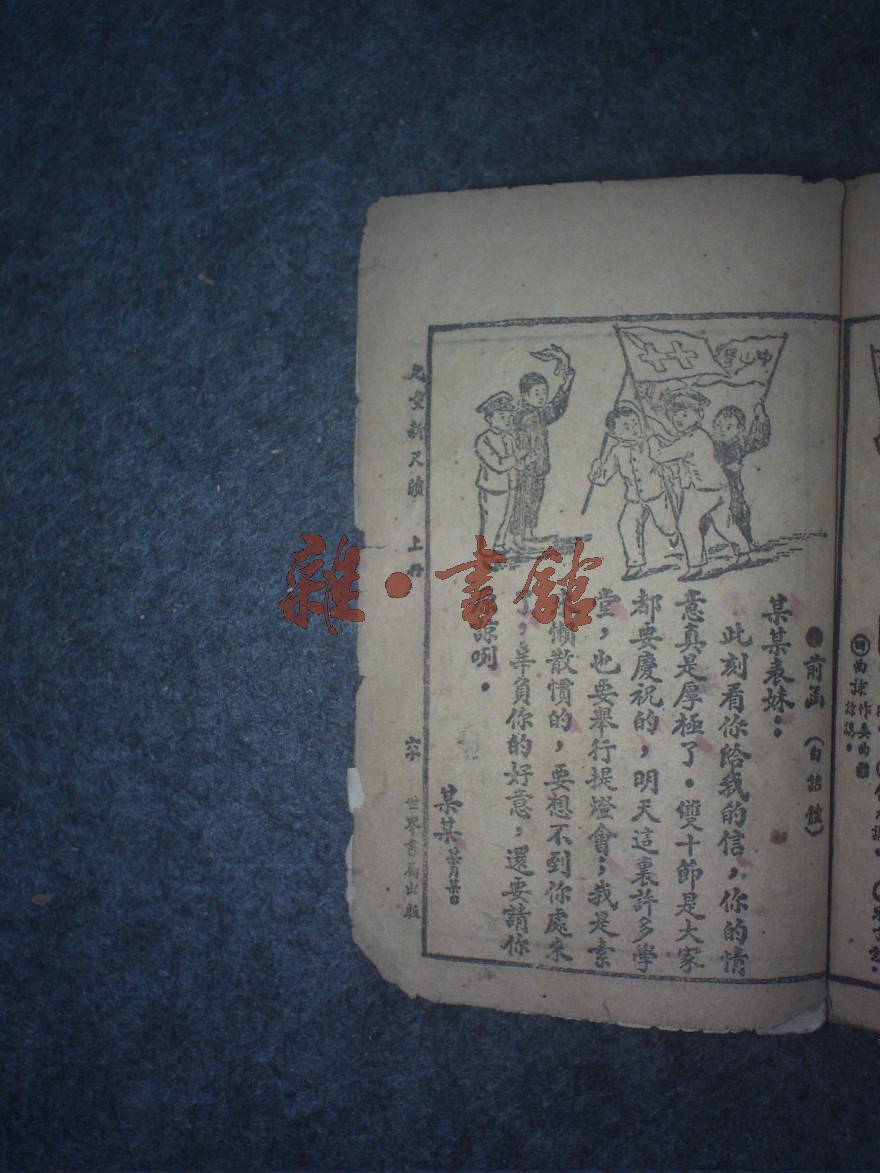 中山學
前函 (白話體)
某某表妹：
此刻看你給我的信，你的情
意真是厚極了．雙十節是大家
都要慶祝的，明天這裏許多學
堂，也要舉行提燈會；我是素
懶散慣的，要想不到你處來
，辜負你的好意，還要請你
諒咧．
某某 某月某日
兒童新尺牘 上冊 六 世界書局出版
雜·書館
回
曲諒作委曲